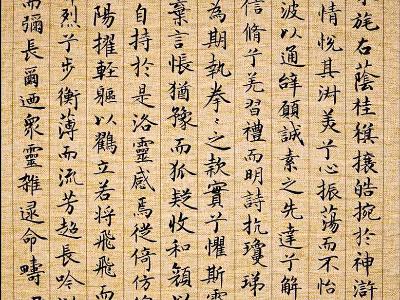 旄右蔭桂旗攘皓捥於神滸
情悅其淑美兮心振蕩而不怡
波以通辭願誠素之先達兮解
信脩兮羌習禮而明詩抗瓊珶
為期執拳々之款實兮懼斯靈
棄言悵猶豫而狐疑收和顏以
自持於是洛靈感焉徙倚彷
陽擢輕軀以鶴立若將飛飛而
烈兮步衡薄而流芳超長吟
而彌長爾迺眾靈雜遝命疇